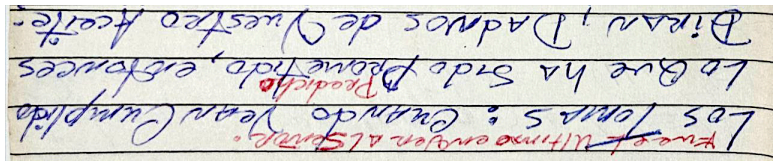 Fue el Ultimo en ver al Señor.
Los Tomas: Cuando Vean Cumplido
Predicho
Lo Que ha Sido Prometido, entonces
Diran, Dadnos de Vuestro Aceite.